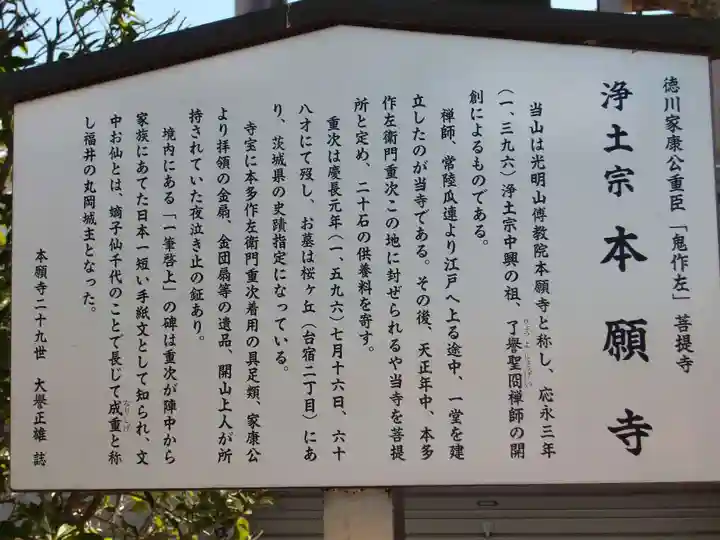 徳川家康公重臣「鬼作左」菩提寺
浄土宗 本願寺
当山は光明山傳教院本願寺と称し、応永三年
(一、三九六)浄土宗中興の祖、了誉聖冏禅師の開
創によるものである。
禅師、常陸瓜連より江戸へ上る途中、一堂を建
立したのが当寺である。その後、天正年中、本多
作左衛門重次この地に封ぜられるや当寺を菩提
所と定め、二十石の供養料を寄す。
重次は慶長元年(一、五九六)七月十六日、六十
八才にて歿し、お墓は桜ヶ丘(台宿二丁目)にあ
り、茨城県の史蹟指定になっている。
寺宝に本多作左衛門重次着用の具足類、家康公
より拝領の金扇、金団扇等の遺品、開山上人が所
持されていた夜泣き止の鉦あり。
境内にある「一筆啓上」の碑は重次が陣中から
家族にあてた日本一短い手紙文として知られ、文
中お仙とは、嫡子仙千代のことで長じて成重と称
し福井の丸岡城主となった。
本願寺二十九世 大譽正雄 誌